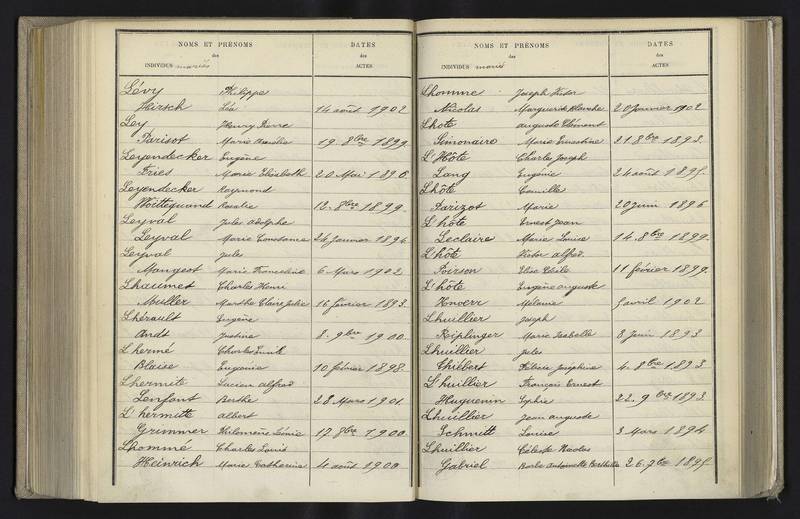 NOMS ET PRÉNOMS DATES
des des
INDIVIDUS mariés ACTES
Lévy Philippe
Hirsch Léa 14 août 1902
Ley Henry Pierre
Parisot Marie Amélie 19. 8bre 1899
Leyendecker Eugène
Fries Marie Elisabeth 20 Mai 1896
Leyendecker Raymond
Woittequand Rosalie 12. 8bre 1899
Leyval Jules Adolphe
Leyval Marie Constance 24 Janvier 1894
Leyval Jules
Mangeot Marie Francéline 6 Mars 1902
Lhaumet Charles Henri
Muller Marthe Claire Julie 16 février 1893
Lhérault Eugène
Andt Justine 8. 9bre 1900
Lhermé Charles Emile
Blaise Eugénie 10 février 1898
Lhermite Lucien alfred
Lenfant Berthe 28 Mars 1901
L'hermitte albert
Grimmer Philomène Léonie 17 8bre 1900
Lhommé Charles Louis
Heinrich Marie Catherine 4 août 1900
NOMS ET PRÉNOMS DATES
des des
INDIVIDUS mariés ACTES
Lhomme Joseph Victor
Nicolas Marguerite Blanche 20 Janvier 1902
Lhote auguste Clément
Simonaire Marie Ernestine 21 8bre 1893
L'Hôte Charles Joseph
Lang Eugénie 24 août 1895
Lhôte Camille
Parizot Marie 20 juin 1896
L'hôte Ernest Jean
Leclaire Marie Louise 14. 8bre 1899
L'hôte Victor alfred
Poirson Elise Cécile 11 février 1899
L'hôte Eugène auguste
Knoerr Mélanie avril 1902
Lhuillier Joseph
Reiplinger Marie Isabelle 8 Juin 1893
Lhuillier Jules
Thiébert Joséphine 4. 8bre 1893
L'huillier François Ernest
Huguenin Sophie 22. 9bre 1893
Lhuillier Jean auguste
Schmitt Louise 3 Mars 1894
Lhuillier Céleste Nicolas
Gabriel Barbe Antoinette Berthilde 26. 7bre 1895